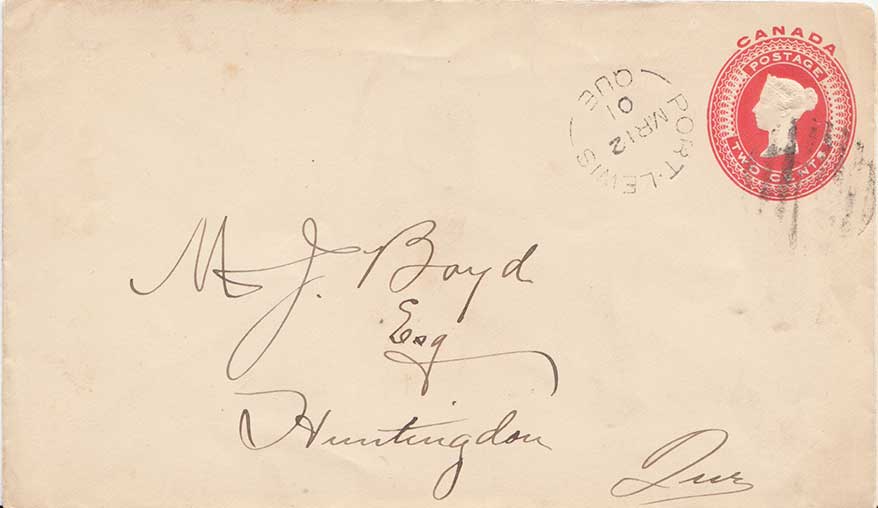 CANADA
POSTAGE
TWO CENTS
PORT-LEWIS
QUE
MR 12
01
M J. Boyd
Esq
Huntingdon
Que